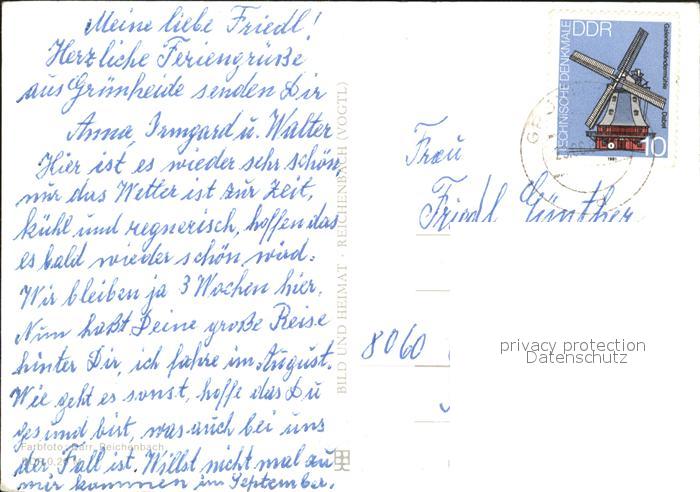 Meine liebe Friedl!
Herzliche Feriengrüße
aus Grünheide senden Dir
Anna, Irmgard u. Walter
Hier ist es wieder sehr schön,
nur das Wetter ist zur Zeit,
kühl und regnerisch, hoffen das
es bald wieder schön wird.
Wir bleiben ja 3 Wochen hier.
Nun haßt Deine große Reise
hinter Dir, ich fahre im August.
Wie geht es sonst, hoffe das Du
gesund bist, was auch bei uns
der Fall ist. Willst nicht mal zu
mir kommen im September.
Farbfoto: Darr, Reichenbach
BILD UND HEIMAT · REICHENBACH (VOGTL)
DDR
TECHNISCHE DENKMALE
Galerieholländermühle Dabel
10
1981
Frau
Friedl Günther
8060
privacy protection
Datenschutz